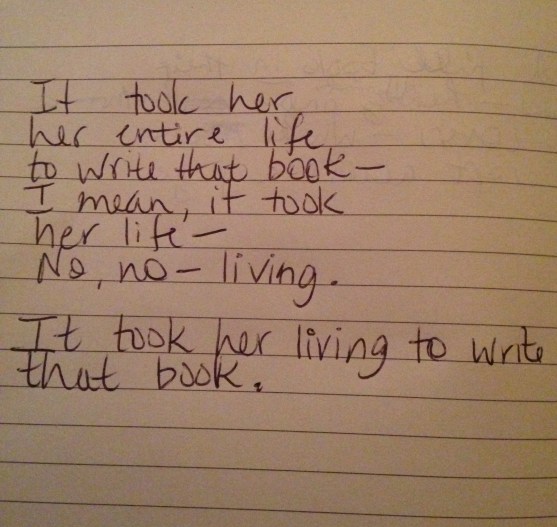 It took her
her entire life
to write that book—
I mean, it took
her life—
No, no— living.
It took her living to write
that book.